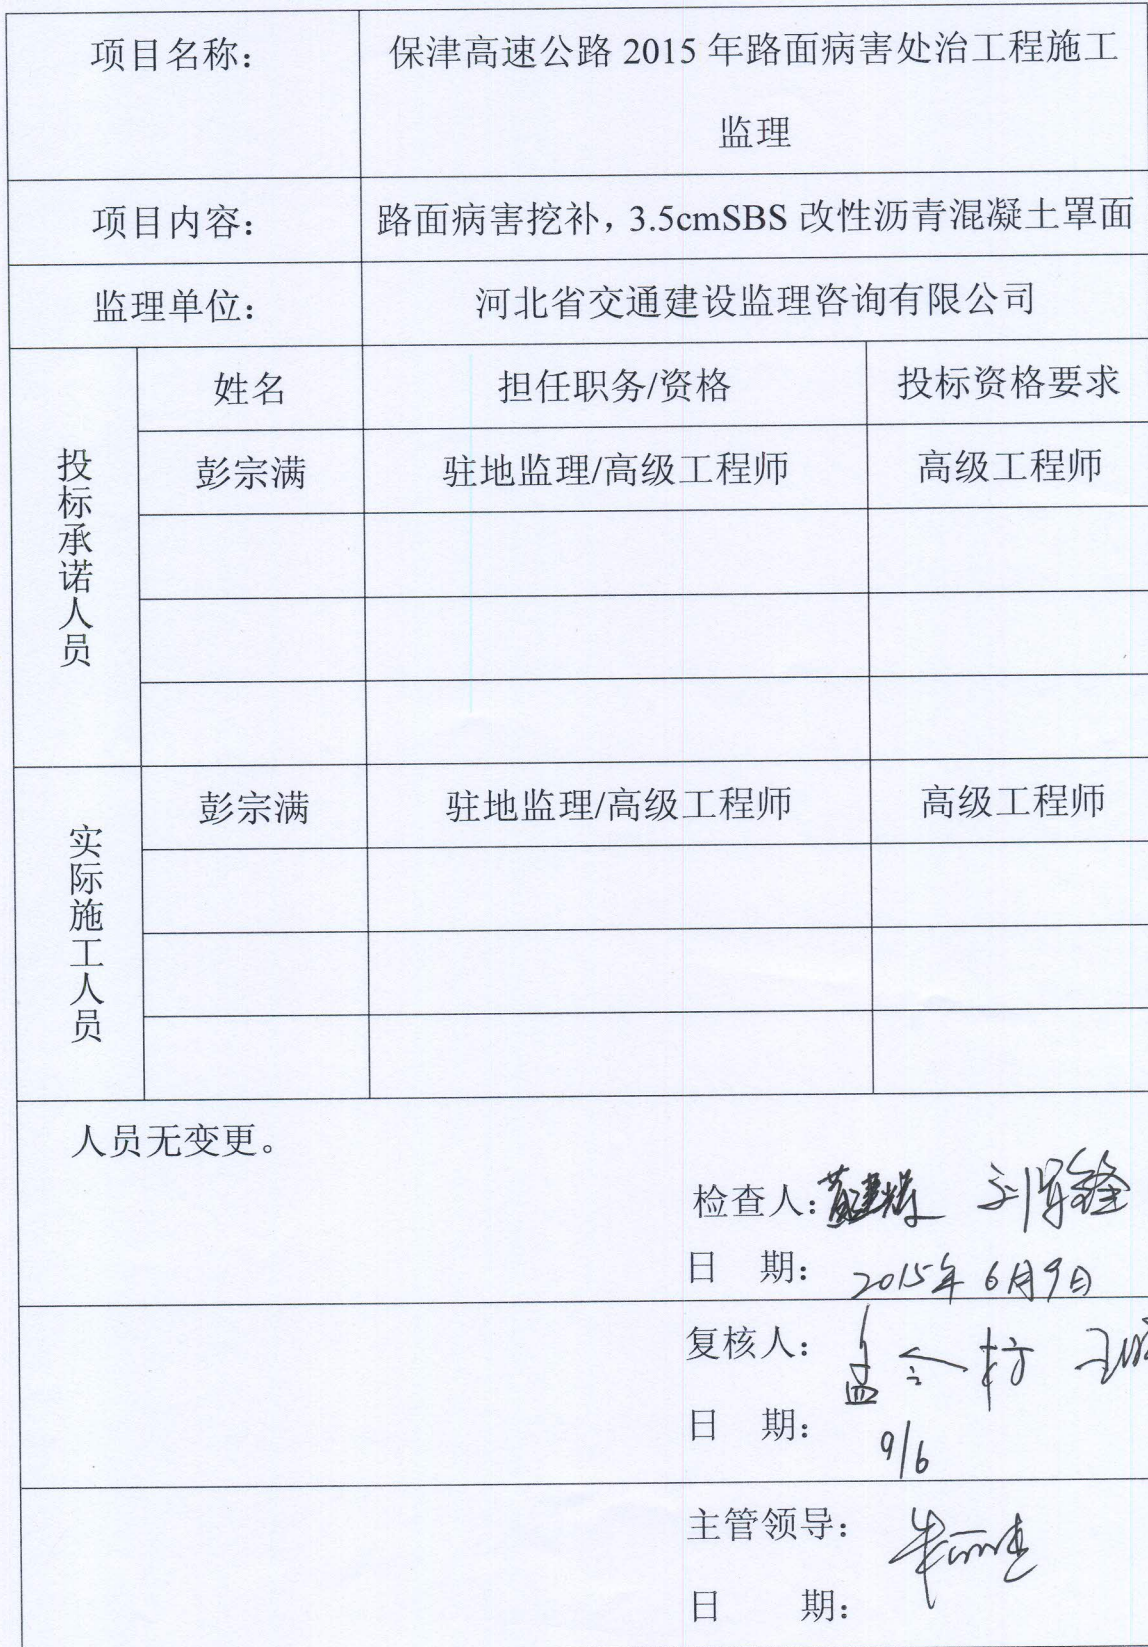 项目名称：
保津高速公路 2015 年路面病害处治工程施工
监理
项目内容：
路面病害挖补，3.5cmSBS 改性沥青混凝土罩面
监理单位：
河北省交通建设监理咨询有限公司
投标承诺人员
姓名 担任职务/资格 投标资格要求
彭宗满 驻地监理/高级工程师 高级工程师
实际施工人员
彭宗满 驻地监理/高级工程师 高级工程师
人员无变更。
检查人：
日 期： 2015年6月9日
复核人：
日 期： 9/6
主管领导：
日 期：